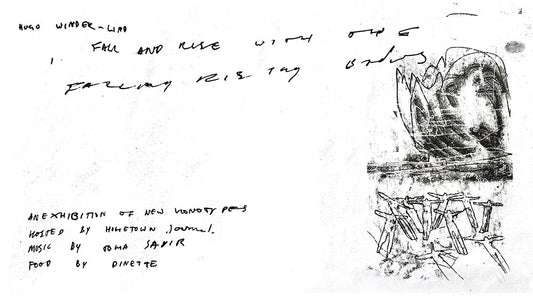 HUGO WINDER-LIND
I FALL AND RISE WITH THE
FALLING
AN EXHIBITION OF NEW MONOTYPES
HOSTED BY HOMETOWN Journal.
MUSIC BY
FOOD BY DINETTE